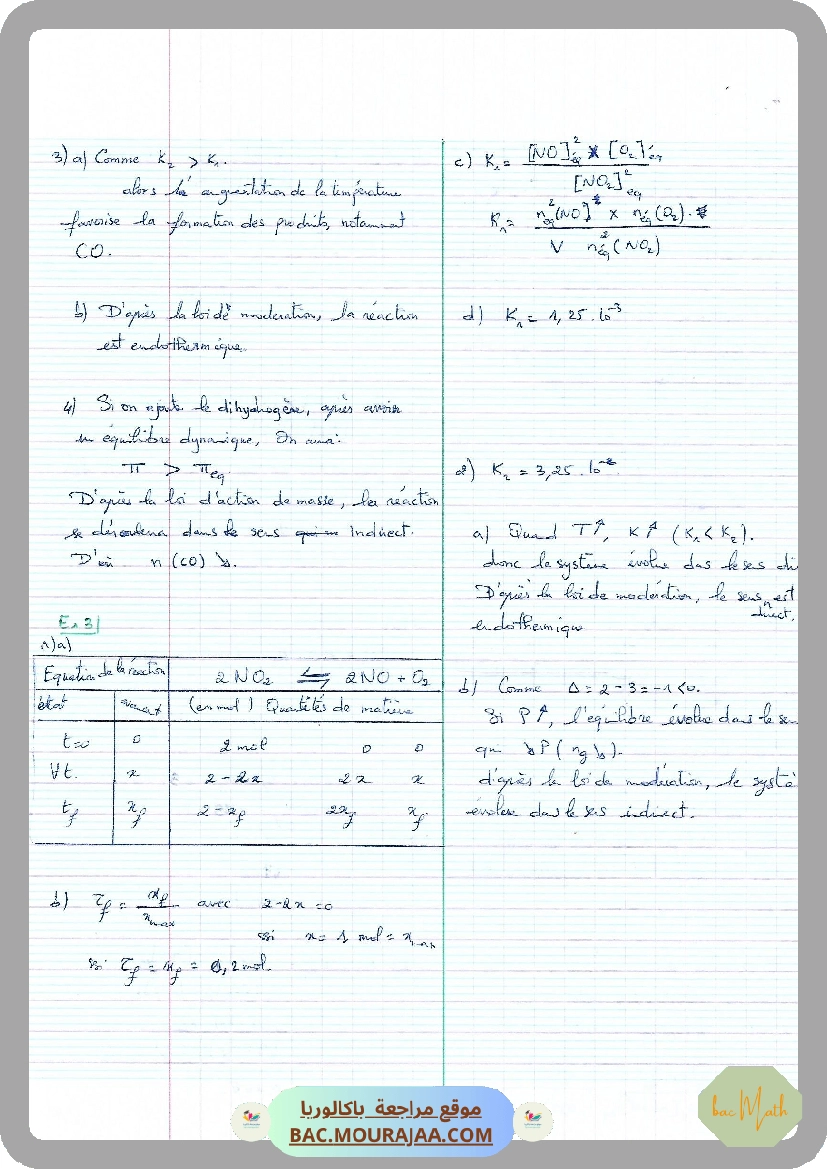 3) a) Comme K₂ > K₁.
alors la augmentation de la température
favorise la formation des produits, notamment
CO.
b) D'après la loi de modération, la réaction
est endothermique.
4) Si on ajoute le dihydrogène, après avoir
un équilibre dynamique, On aura:
Π > Π eq.
D'après la loi d'action de masse, la réaction
se déroulera dans le sens indirect.
D'où n (CO) ↘.
Ex 3
1) a)
Equation de la réaction 2 NO₂ ⇌ 2NO + O₂
état avanct (en mol) Quantités de matière
t=0 0 2 mol 0 0
∀t. x 2-2x 2x x
t_f x_f 2-x_f 2x_f x_f
b) τ_f = x_f / x_max avec 2-2x=0
ssi x = 1 mol = x_max
τ_f = x_f = 0,2 mol
c) K₁ = [NO]²éq × [O₂]éq / [NO₂]²éq
K₁ = n²éq(NO) × néq(O₂). / V n²éq(NO₂)
d) K₁ = 1,25.10⁻³
2) K₂ = 3,25.10⁻²
a) Quand T↑, K↑ (K₁<K₂).
donc le système évolue das le ses di
D'après la loi de modération, le sens direct, est
endothermique
b) Comme Δ = 2-3 = -1<0.
Si P↑, l'équilibre évolue dans le sen
qui ↘P (ng↘).
d'après la loi de modération, le systè
évoluera das le ses indirect.
موقع مراجعة باكالوريا
BAC.MOURAJAA.COM
bac Math